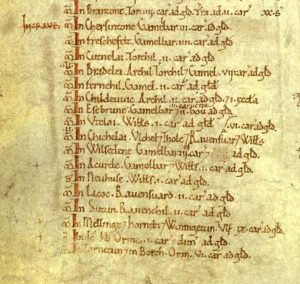 INCRAVE. In Branzone. Torc iiii car' ad gld. Tra. ad ii car' xx s
In Chersintone. Gamelbar ii car' ad gld.
In Treschefelt. Gamelbar iiii car' ad gld.
In Cutnelai. Torchil ii car' ad gld.
In Bradelei. Archil Torchil Gamel. vii car' ad gld
In Fernehil. Gamel ii car' ad gld.
In Childeuuic. Archil ii car' ad gld. 7 i eccla
In Esebrune. Gamelbar ii car' 7 ii bou ad gld.
In Utelai. Wills i car' ad gld
In Chichelai. Ulchel 7 Thole 7 Rauensuar 7 Wills vi car' ad gld.
In Wilsedene. Gamelbar iii car' ad gld.
In Acurde. Gamelbar 7 Wills i car' ad gld.
In Neuhuse. Wills i car' ad gld.
In Lacoc. Rauensuard ii car' ad gld.
In Sutun. Rauenchil ii car' ad gld.
In Mellinge 7 hornebi 7 Wenningetun. Ulf ix car' ad gld.
hb Orme i car' 7 dim' ad gld.
Borch. Orm. vi car' ad gld.